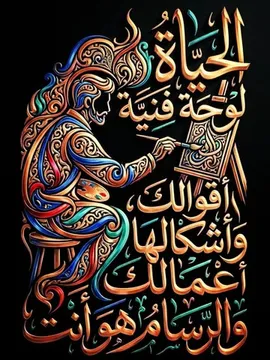 الحَيَاةُ
لوحَة فَنِيَّة
أقوالك،
وَأشكالها
أعمَالك
وَالرسَامُ هوَ أنت